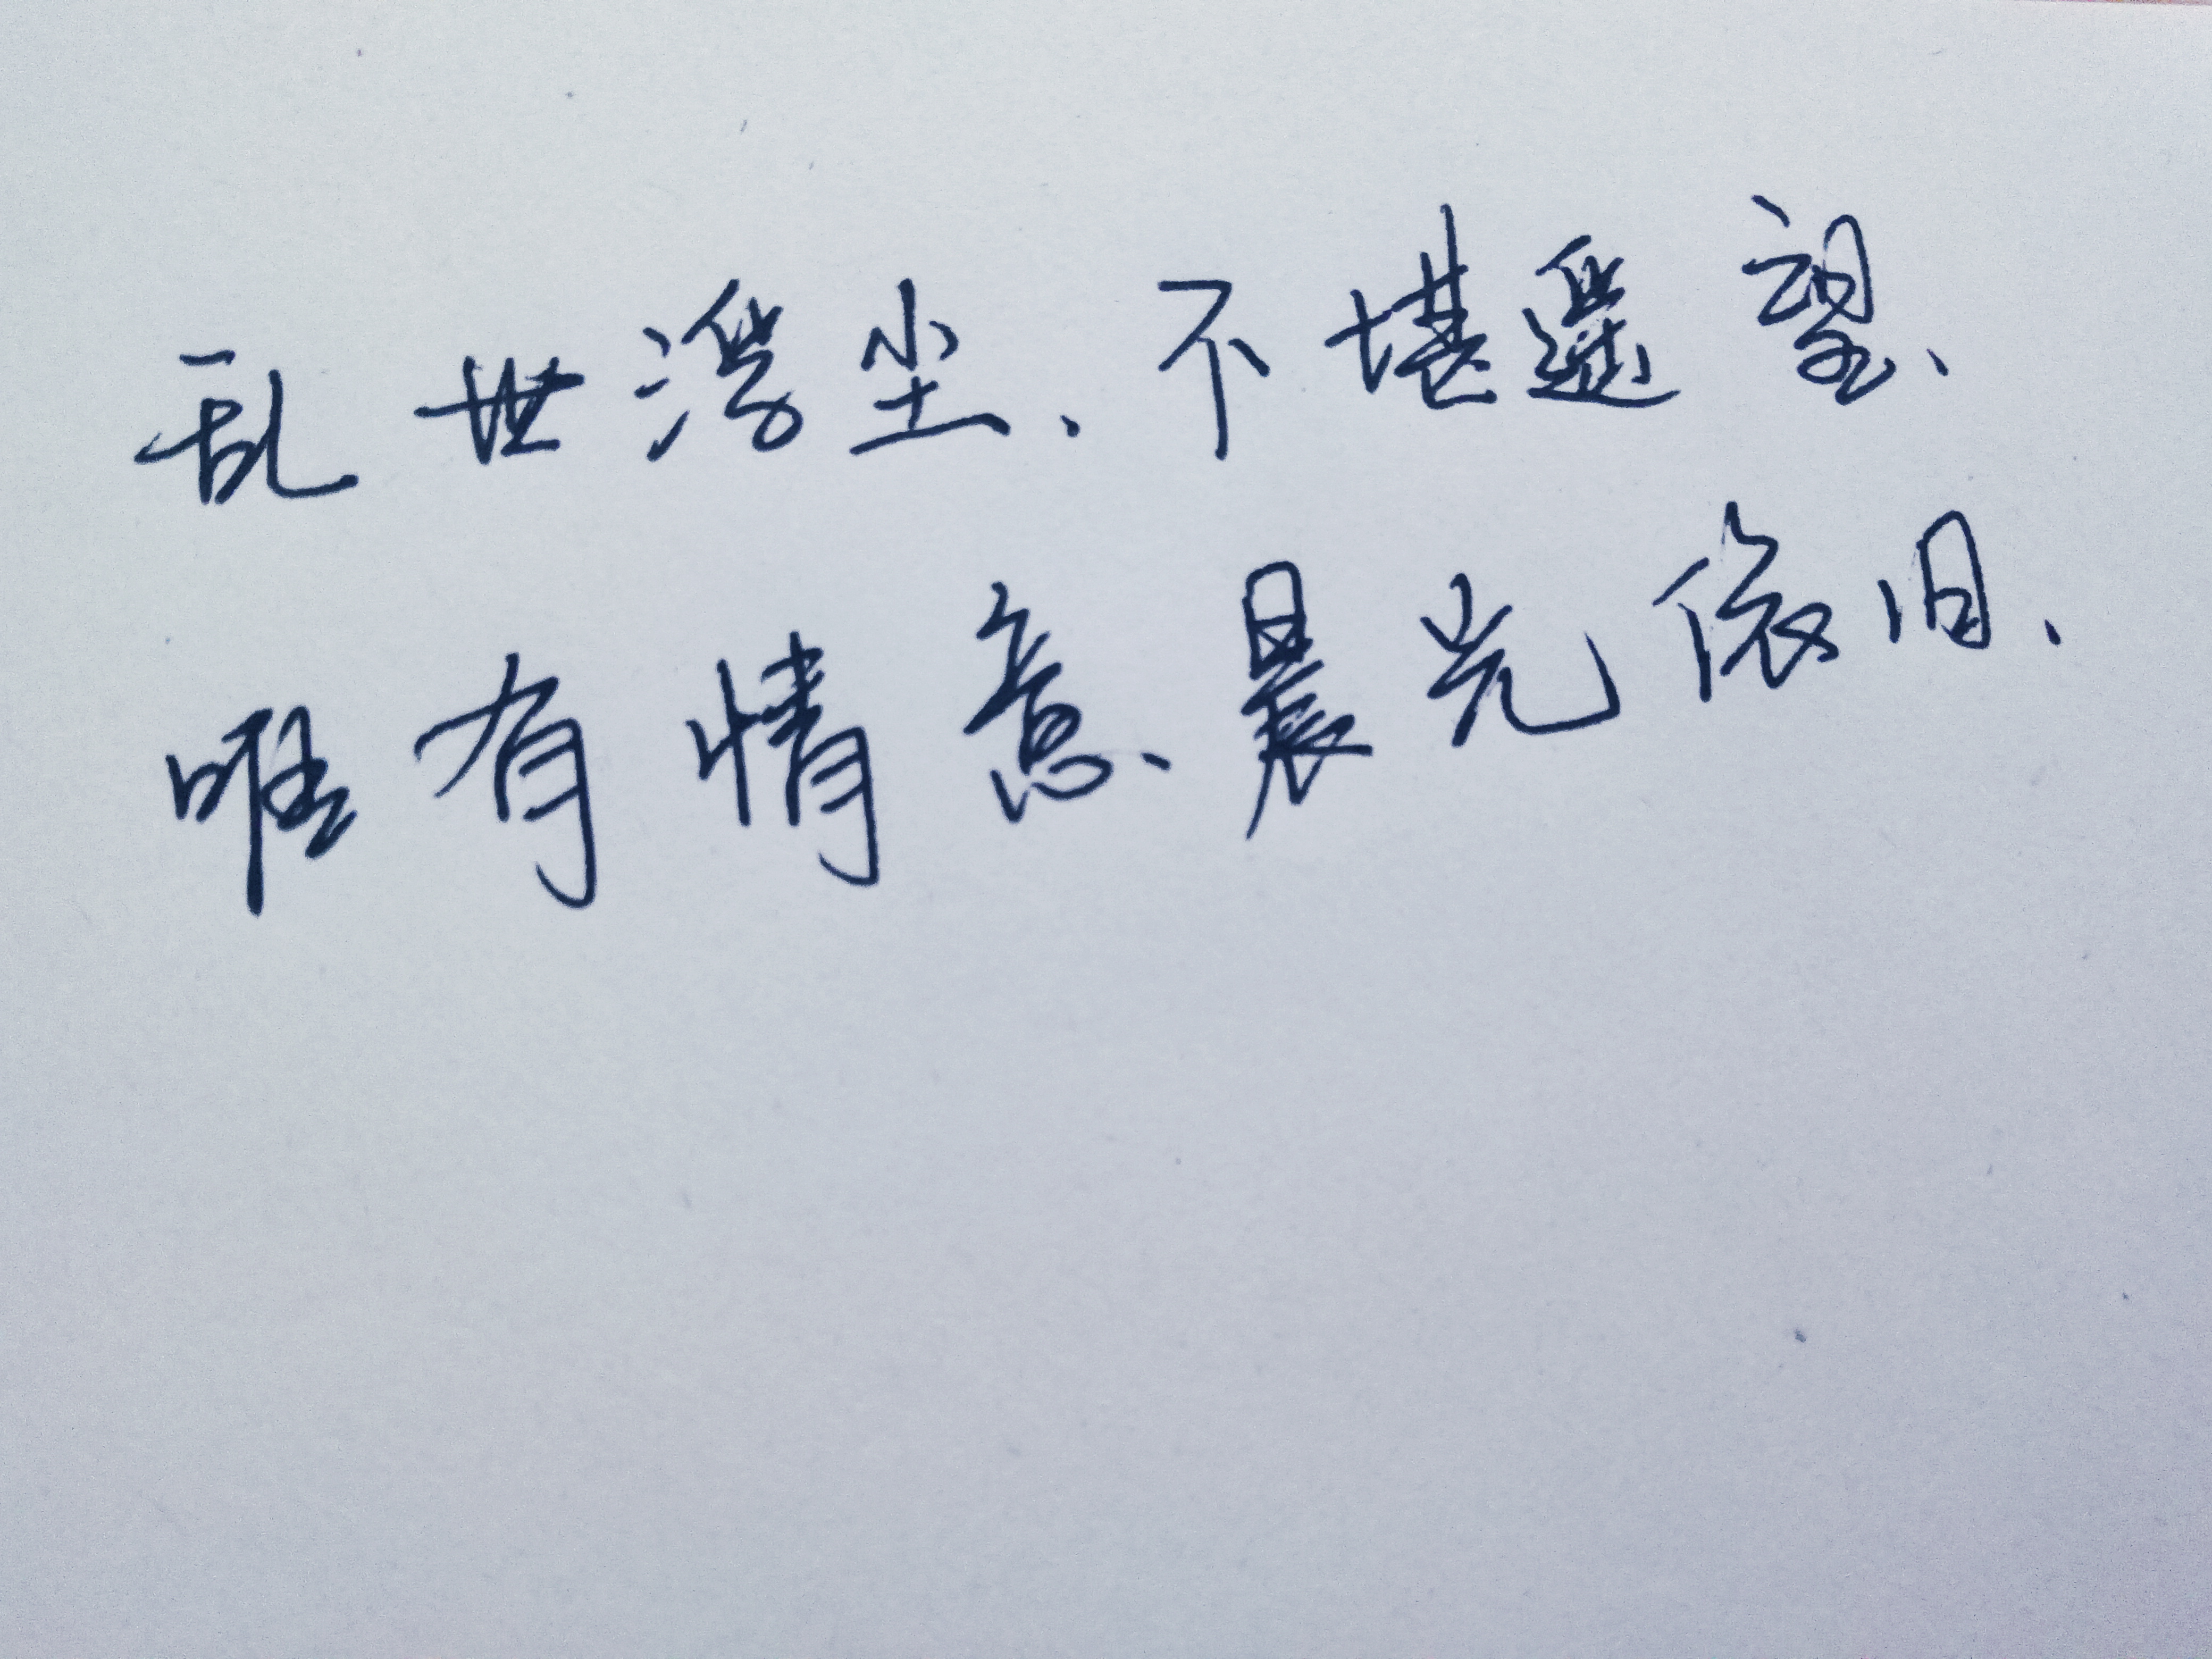 乱世浮尘、不堪遥望、
唯有情意、晨光依旧、